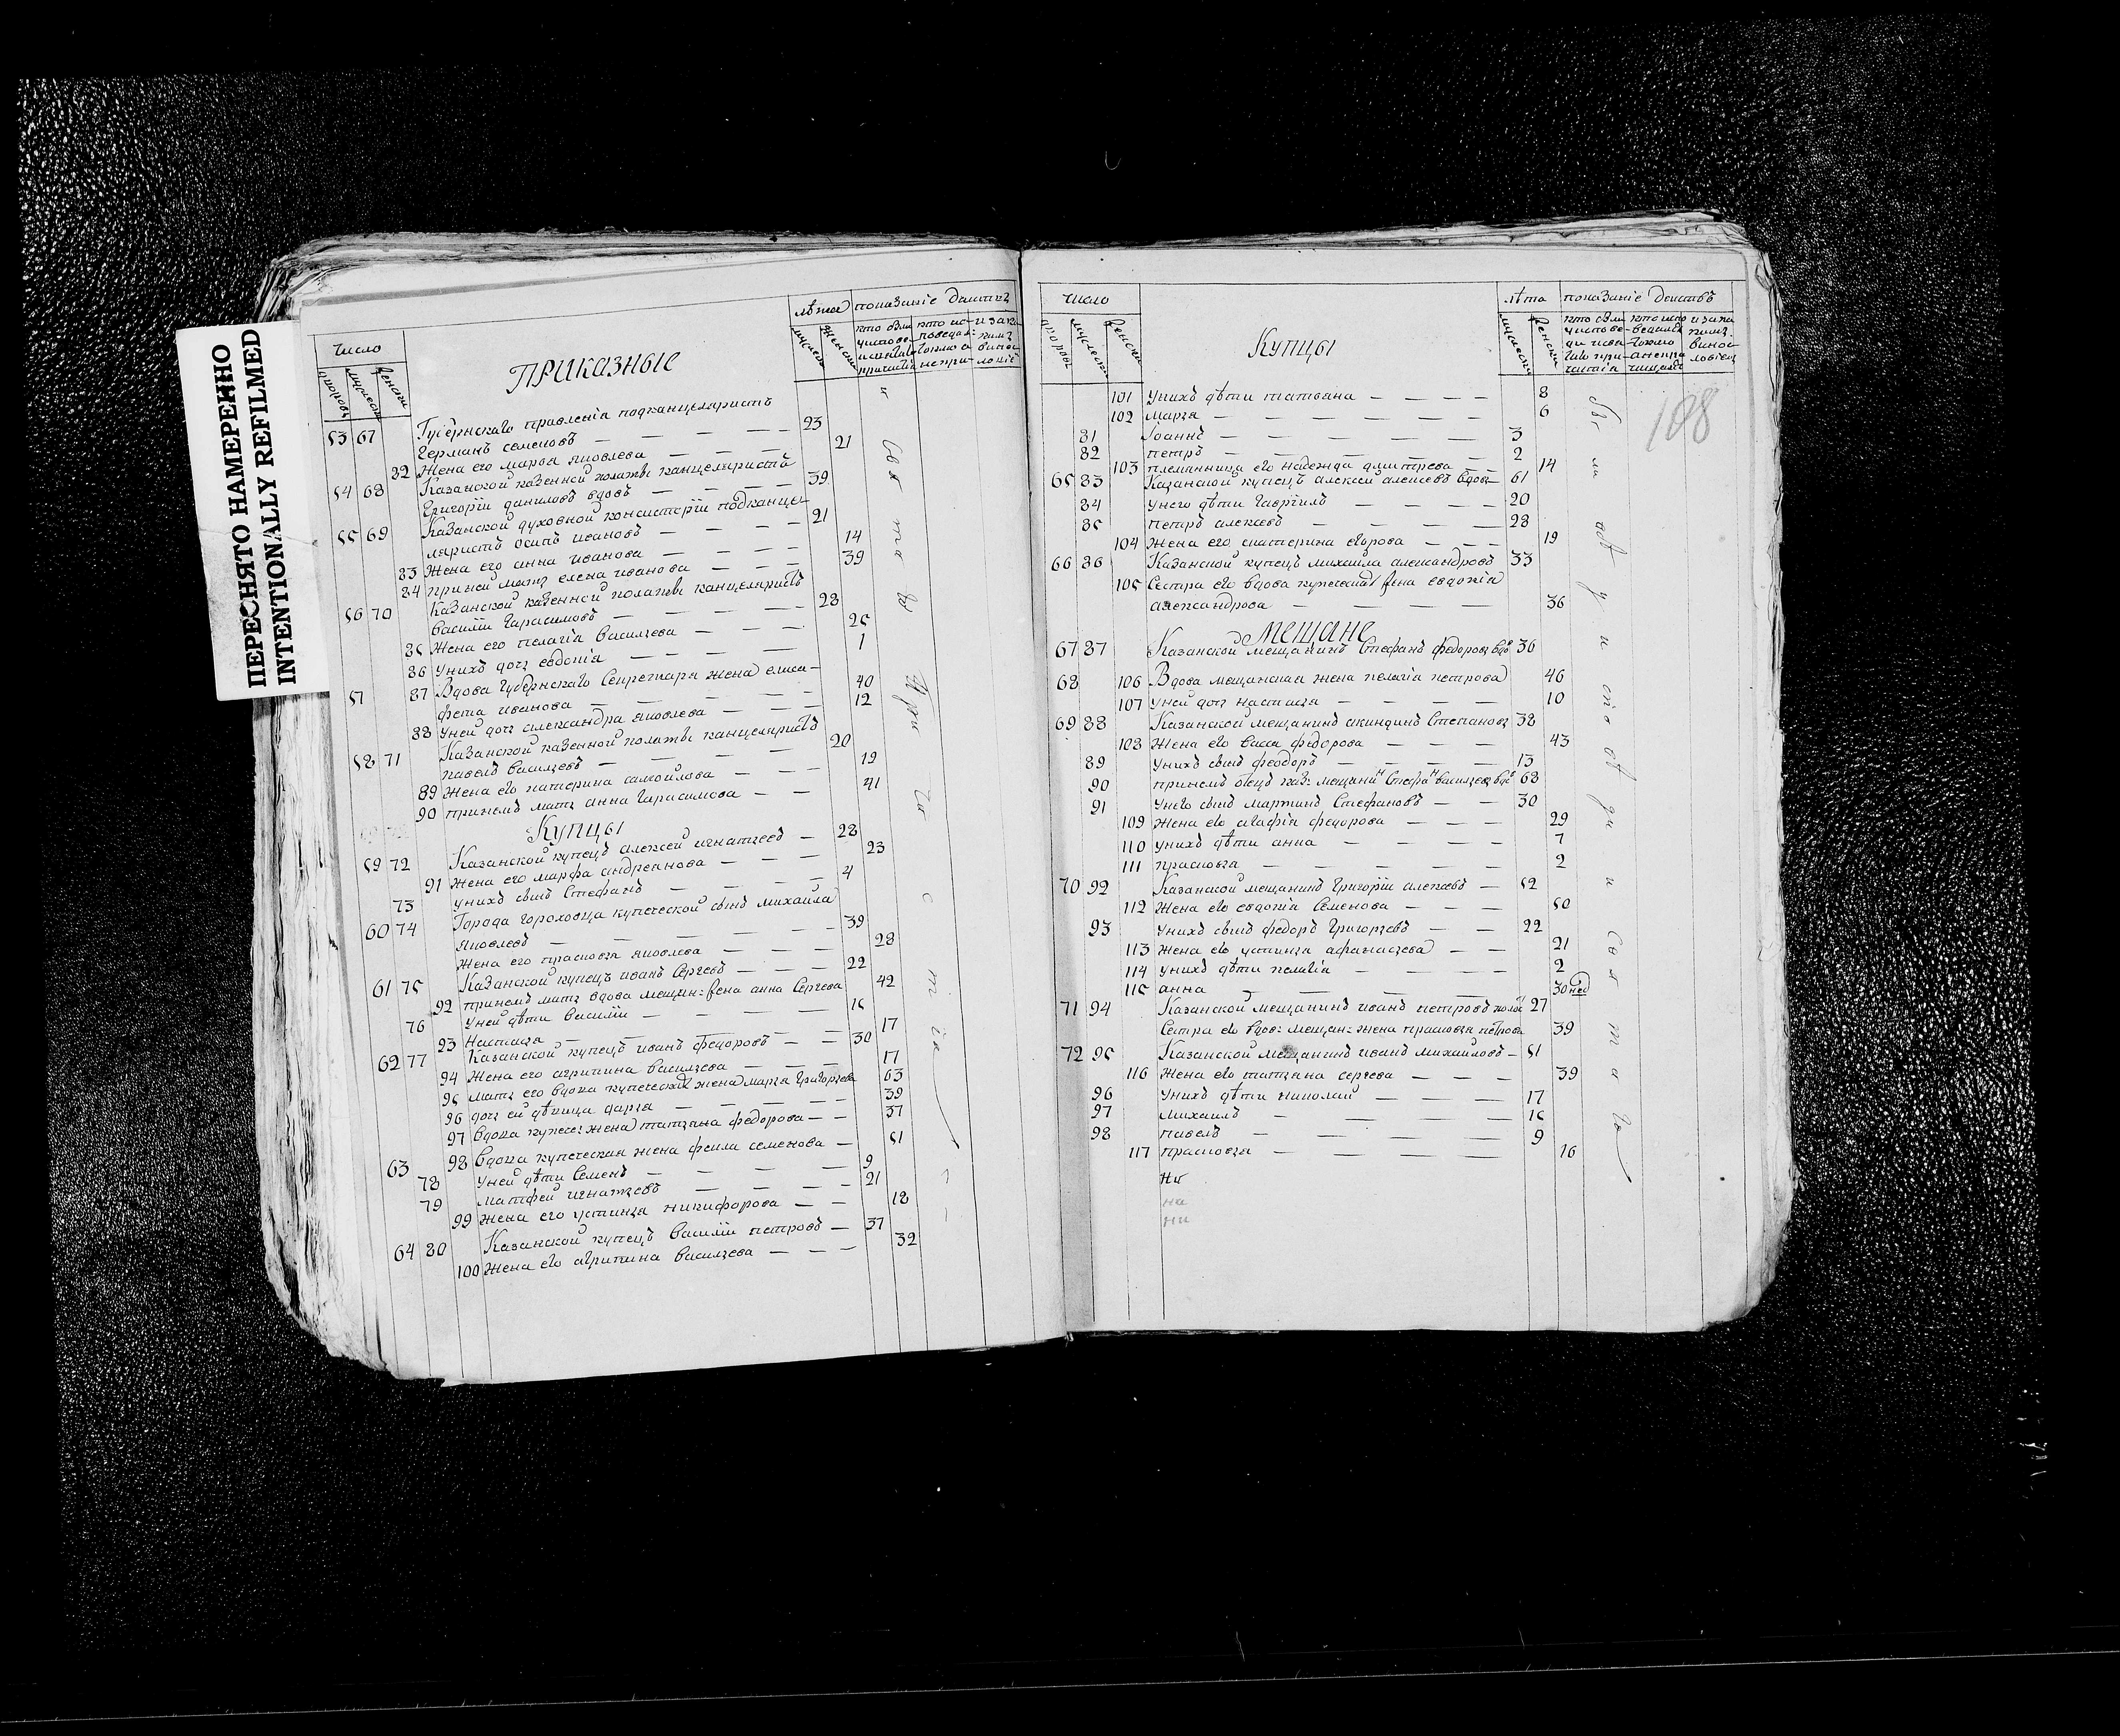 ПЕРЕСНЯТО НАМЕРЕННО
INTENTIONALLY REFILMED
Число
лѣта показаніе
приказные
53 67 Губернскаго правленія подканцеляристъ
Германъ семеновъ — — — — 23
82 Жена его марѳа яковлева — — — 21
54 68 Казанской казенной полаты канцеляристъ
Григорій даниловъ вдовъ — — — 39
55 69 Казанской духовной консисторіи подканце-
ляристъ осипъ ивановъ — — — 21
83 Жена его анна иванова — — — 14
84 при ней мать елена иванова — — — 39
56 70 Казанской казенной полаты канцеляристъ
василій гарасимовъ — — — — 28
85 Жена его пелагія васильева — — — 25
86 у нихъ дочь евдокія — — — — 1
57 87 Вдова губернскаго секретаря жена елиса-
фета иванова — — — — 40
88 у ней дочь александра яковлева — — — 12
58 71 Казанской казенной полаты канцеляристъ
павелъ васильевъ — — — — 20
89 Жена его катерина самойлова — — — 19
90 при немъ мать анна гарасимова — — 41
Купцы
59 72 Казанской купецъ алексей игнатьевъ — 28
91 Жена его марфа андреянова — — — 23
73 у нихъ сынъ стефанъ — — — — 4
60 74 Города гороховца купеческой сынъ михайла
яковлевъ — — — — — 39
Жена его прасковья яковлева — — — 28
61 75 Казанской купецъ иванъ сергеевъ — — — 22
92 при немъ мать вдова мещан: жена анна сергеева 42
76 у ней дѣти василій — — — — 15
93 настасья — — — — 17
62 77 Казанской купецъ иванъ федоровъ — — 30
94 Жена его агрипина васильева — — — 17
95 мать его вдова купеческая жена марья григорьева 63
96 дочь ей дѣвица дарья — — — — 39
97 вдова купече: жена татьяна федорова — — 37
63 98 вдова купеческая жена фекла семенова — 51
78 у ней дѣти семенъ — — — — 9
79 матфей игнатьевъ — — — — 21
99 Жена его устинья никифорова — — 18
64 80 Казанской купецъ василій петровъ — 37
100 Жена его агрипина васильева — — — 32
Число
лѣта показаніе
Купцы
108
101 у нихъ дѣти татьяна — — — — 8
102 марья — — — — — 6
81 Іоаннъ — — — — — 3
82 петръ — — — — — 2
103 племянница его надежда дмитрева — — 14
65 83 Казанской купецъ алексей алексеевъ вдовъ 61
84 у него дѣти гаврилъ — — — — 20
85 петръ алексеевъ — — — — 28
104 Жена его екатерина егорова — — — 19
66 86 Казанской купецъ михайла александровъ 33
105 Сестра его вдова купеческая жена евдокія
александрова — — — — 36
мещане
67 87 Казанской мещанинъ стефанъ федоровъ вдо 36
68 106 Вдова мещанская жена пелагія петрова 46
107 у ней дочь настасья — — — — 10
69 88 Казанской мещанинъ акиндинъ степановъ 38
108 Жена его васса федорова — — — 43
89 у нихъ сынъ феодоръ — — — — 13
90 при немъ отецъ каз: мещанинъ стефанъ васильевъ вдо 68
91 у него сынъ мартинъ стефановъ — — 30
109 Жена его агафія федорова — — — 29
110 у нихъ дѣти анна — — — — 7
111 прасковья — — — — — 2
70 92 Казанской мещанинъ григорій алексеевъ — 52
112 Жена его евдокія семенова — — — 50
93 у нихъ сынъ федоръ григорьевъ — — 22
113 Жена его устинья афанасьева — — 21
114 у нихъ дѣти пелагія — — — — 2
115 анна — — — — — 30 нед
71 94 Казанской мещанинъ иванъ петровъ 27
Сестра его вдов: мещан: жена прасковья петрова 39
72 95 Казанской мещанинъ иванъ михайловъ — 51
116 Жена его татьяна сергеева — — — 39
96 у нихъ дѣти николай — — — 17
97 михаилъ — — — 15
98 павелъ — — — — 9
117 прасковья — — — — 16